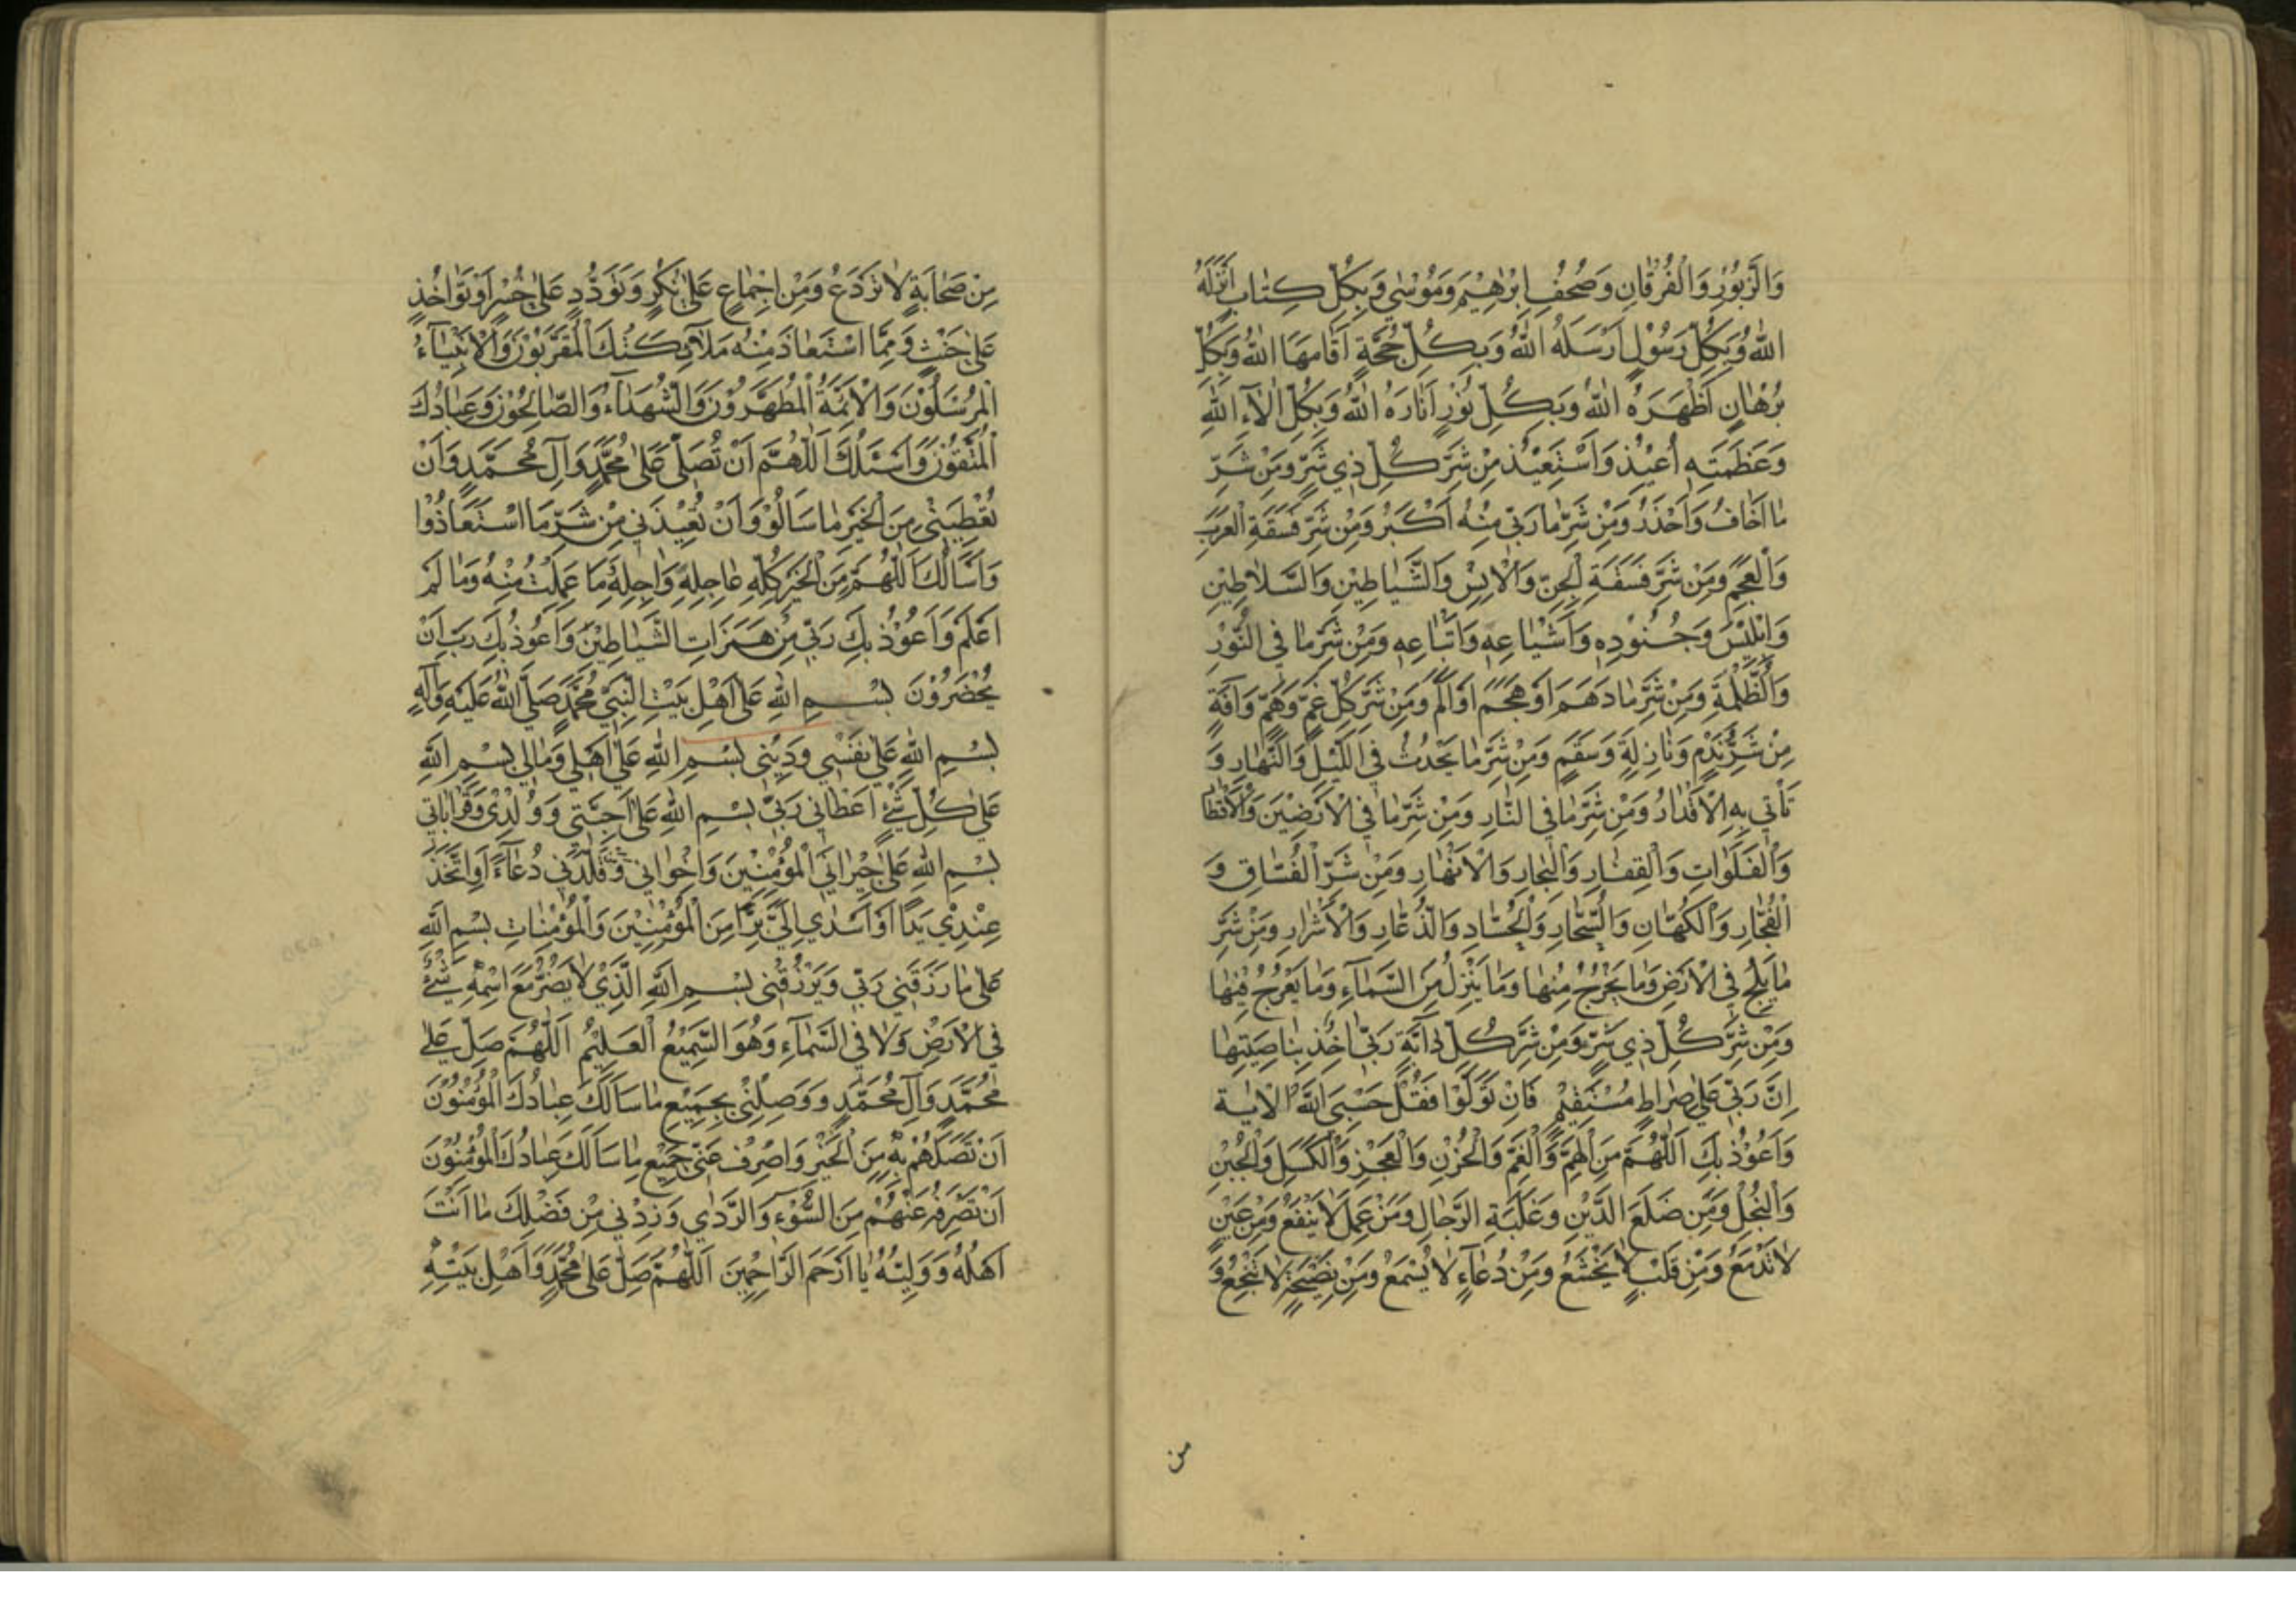 وَالزَّبُوْرِ وَالْفُرْقَانِ وَصُحُفِ اِبْرٰهِيْمَ وَمُوْسٰي وَبِكُلِّ كِتَابٍ اَنْزَلَهُ
اللهُ وَبِكُلِّ رَسُوْلٍ اَرْسَلَهُ اللهُ وَبِكُلِّ حُجَّةٍ اَقَامَهَا اللهُ وَبِكُلِّ
بُرْهَانٍ اَظْهَرَهُ اللهُ وَبِكُلِّ نُوْرٍ اَنَارَهُ اللهُ وَبِكُلِّ اٰلَآءِ اللهِ
وَعَظَمَتِهِ اُعِيْذُ وَاَسْتَعِيْذُ مِنْ شَرِّ كُلِّ ذِي شَرٍّ وَمِنْ شَرِّ
مَا اَخَافُ وَاَحْذَرُ وَمِنْ شَرِّ مَا رَبِّي مِنْهُ اَكْبَرُ وَمِنْ شَرِّ فَسَقَةِ الْعَرَبِ
وَالْعَجَمِ وَمِنْ شَرِّ فَسَقَةِ الْجِنِّ وَالْاِنْسِ وَالشَّيَاطِيْنِ وَالسَّلَاطِيْنِ
وَاِبْلِيْسَ وَجُنُوْدِهِ وَاَشْيَاعِهِ وَاَتْبَاعِهِ وَمِنْ شَرِّ مَا فِي النُّوْرِ
وَالظُّلْمَةِ وَمِنْ شَرِّ مَا دَهَمَ اَوْ هَجَمَ اَوْ اَلَمَّ وَمِنْ شَرِّ كُلِّ غَمٍّ وَهَمٍّ وَاٰفَةٍ
مِنْ شَرِّ نَدَمٍ وَنَازِلَةٍ وَسَقَمٍ وَمِنْ شَرِّ مَا يَحْدُثُ فِي اللَّيْلِ وَالنَّهَارِ وَ
تَأْتِي بِهِ الْاَقْدَارُ وَمِنْ شَرِّ مَا فِي النَّارِ وَمِنْ شَرِّ مَا فِي الْاَرَضِيْنَ وَالْاَقْطَارِ
وَالْفَلَوَاتِ وَالْقِفَارِ وَالْبِحَارِ وَالْاَنْهَارِ وَمِنْ شَرِّ الْفُسَّاقِ وَ
الْفُجَّارِ وَالْكُهَّانِ وَالسُّحَّارِ وَالْحُسَّادِ وَالذُّعَّارِ وَالْاَشْرَارِ وَمِنْ شَرِّ
مَا يَلِجُ فِي الْاَرْضِ وَمَا يَخْرُجُ مِنْهَا وَمَا يَنْزِلُ مِنَ السَّمَآءِ وَمَا يَعْرُجُ فِيْهَا
وَمِنْ شَرِّ كُلِّ ذِي شَرٍّ وَمِنْ شَرِّ كُلِّ دَآبَّةٍ رَبِّي اٰخِذٌ بِنَاصِيَتِهَا
اِنَّ رَبِّي عَلٰي صِرَاطٍ مُسْتَقِيْمٍ فَاِنْ تَوَلَّوْا فَقُلْ حَسْبِيَ اللهُ الْاٰيَة
وَاَعُوْذُ بِكَ اَللّٰهُمَّ مِنَ الْهَمِّ وَالْغَمِّ وَالْحُزْنِ وَالْعَجْزِ وَالْكَسَلِ وَالْجُبْنِ
وَالْبُخْلِ وَمِنْ ضَلَعِ الدَّيْنِ وَغَلَبَةِ الرِّجَالِ وَمِنْ عَمَلٍ لَا يَنْفَعُ وَمِنْ عَيْنٍ
لَا تَدْمَعُ وَمِنْ قَلْبٍ لَا يَخْشَعُ وَمِنْ دُعَآءٍ لَا يُسْمَعُ وَمِنْ نَصِيْحَةٍ لَا تَنْجَعُ وَ
من
مِنْ صَحَابَةٍ لَا تَرْدَعُ وَمِنْ اِجْمَاعٍ عَلٰي نُكْرٍ وَتَوَدُّدٍ عَلٰي خُسْرٍ اَوْ تَوَاخُذٍ
عَلٰي خُبْثٍ وَمِمَّا اسْتَعَاذَ مِنْهُ مَلَآئِكَتُكَ الْمُقَرَّبُوْنَ وَالْاَنْبِيَآءُ
الْمُرْسَلُوْنَ وَالْاَئِمَّةُ الْمُطَهَّرُوْنَ وَالشُّهَدَآءُ وَالصَّالِحُوْنَ وَعِبَادُكَ
الْمُتَّقُوْنَ وَاَسْئَلُكَ اَللّٰهُمَّ اَنْ تُصَلِّي عَلٰي مُحَمَّدٍ وَآلِ مُحَمَّدٍ وَاَنْ
تُعْطِيَنِي مِنَ الْخَيْرِ مَا سَاَلُوْا وَاَنْ تُعِيْذَنِي مِنْ شَرِّ مَا اسْتَعَاذُوْا
وَاَسْاَلُكَ اَللّٰهُمَّ مِنَ الْخَيْرِ كُلِّهِ عَاجِلِهِ وَاٰجِلِهِ مَا عَلِمْتُ مِنْهُ وَمَا لَمْ
اَعْلَمْ وَاَعُوْذُ بِكَ رَبِّي مِنْ هَمَزَاتِ الشَّيَاطِيْنِ وَاَعُوْذُ بِكَ رَبِّ اَنْ
يَحْضُرُوْنَ بِسْمِ اللهِ عَلٰي اَهْلِ بَيْتِ النَّبِيِّ مُحَمَّدٍ صَلَّي اللهُ عَلَيْهِ وَآلِهِ
بِسْمِ اللهِ عَلٰي نَفْسِي وَدِيْنِي بِسْمِ اللهِ عَلٰي اَهْلِي وَمَالِي بِسْمِ اللهِ
عَلٰي كُلِّ شَيْءٍ اَعْطَانِي رَبِّي بِسْمِ اللهِ عَلٰي اَحِبَّتِي وَوُلْدِي وَقَرَابَاتِي
بِسْمِ اللهِ عَلٰي جِيْرَانِي الْمُؤْمِنِيْنَ وَاِخْوَانِي وَمَنْ قَلَّدَنِي دُعَآءً اَوِ اتَّخَذَ
عِنْدِي يَدًا اَوْ اَسْدٰي اِلَيَّ بِرًّا مِنَ الْمُؤْمِنِيْنَ وَالْمُؤْمِنَاتِ بِسْمِ اللهِ
عَلٰي مَا رَزَقَنِي رَبِّي وَيَرْزُقُنِي بِسْمِ اللهِ الَّذِي لَا يَضُرُّ مَعَ اسْمِهِ شَيْءٌ
فِي الْاَرْضِ وَلَا فِي السَّمَآءِ وَهُوَ السَّمِيْعُ الْعَلِيْمُ اَللّٰهُمَّ صَلِّ عَلٰي
مُحَمَّدٍ وَآلِ مُحَمَّدٍ وَوَصِلْنِي بِجَمِيْعِ مَا سَاَلَكَ عِبَادُكَ الْمُؤْمِنُوْنَ
اَنْ تَصِلَهُمْ بِهِ مِنَ الْخَيْرِ وَاصْرِفْ عَنِّي جَمِيْعَ مَا سَاَلَكَ عِبَادُكَ الْمُؤْمِنُوْنَ
اَنْ تَصْرِفَهُ عَنْهُمْ مِنَ السُّوْءِ وَالرَّدٰي وَزِدْنِي مِنْ فَضْلِكَ مَا اَنْتَ
اَهْلُهُ وَوَلِيُّهُ يَا اَرْحَمَ الرَّاحِمِيْنَ اَللّٰهُمَّ صَلِّ عَلٰي مُحَمَّدٍ وَاَهْلِ بَيْتِهِ